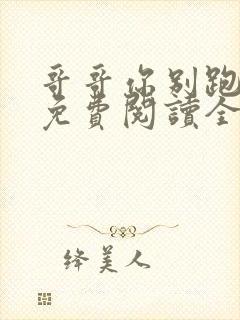 哥哥你别跑
免費閱讀全
绛美人